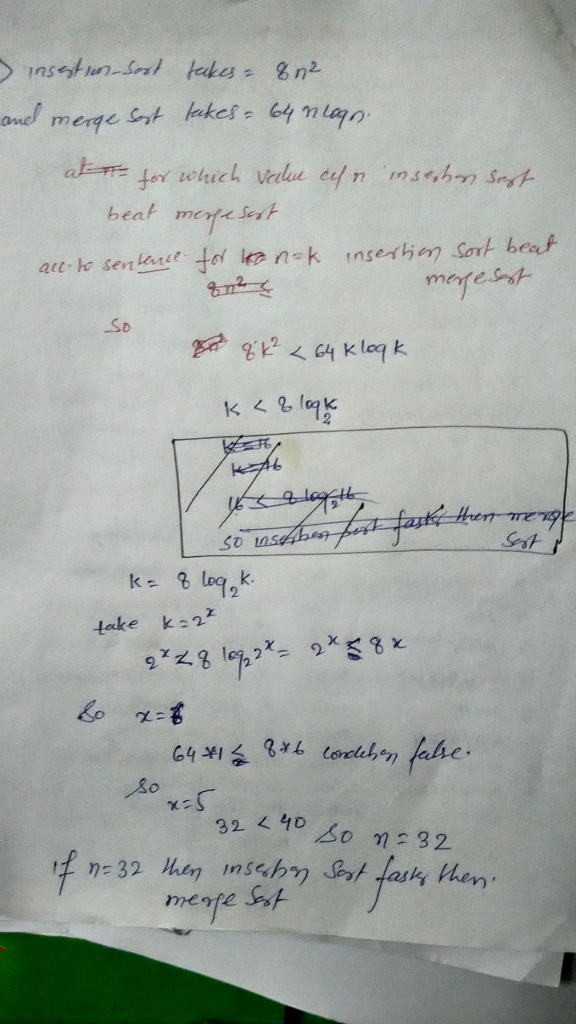 insertion-Sort takes = 8n²
and merge Sort takes = 64 n log n.
for which value of n insertion sort
beat merge sort
acc. to sentence for n=k insertion sort beat
merge sort
8n² <
So
8k² < 64 k log k
k < 8 log k
2
k = 16
k = 16
16 < 8 log₂ 16
so insertion sort faster then merge
Sort
k = 8 log₂ k.
take k = 2ˣ
2ˣ < 8 log₂ 2ˣ = 2ˣ ≤ 8x
So x = 6
64 *1 ≤ 8*6 condition false.
So
x = 5
32 < 40 So n = 32
if n=32 then insertion Sort faster then.
merge Sort